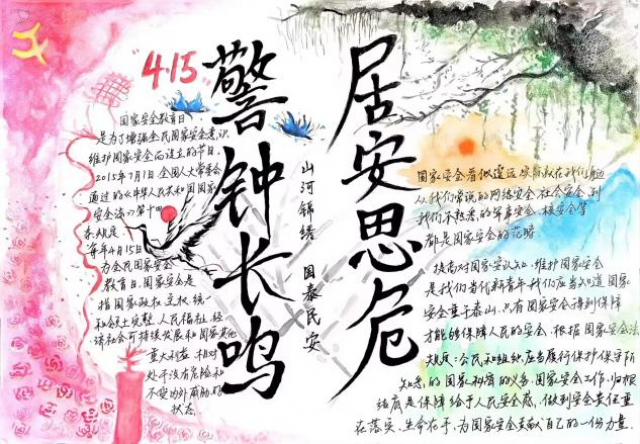 "4.15"
居安思危
警钟长鸣
山河锦绣 国泰民安
国家安全教育日
是为了增强全民国家安全意识
维护国家安全而设立的节日
2015年7月1日全国人大常委会
通过的《中华人民共和国国家
安全法》第十四
条规定
每年4月15日
为全民国家安全
教育日。国家安全是
指国家政权、主权、统一
和领土完整、人民福祉、经
济社会可持续发展和国家其他
重大利益 相对
处于没有危险和
不受内外威胁的
状态
国家安全看似遥远 实际就在我们身边
从我们常说的网络安全 社会安全 到
我们不熟悉的军事安全、核安全等
都是国家安全的范畴
提高对国家安全认知、维护国家安全
是我们当代新青年 我们应当知道 国家
安全重于泰山、只有国家安全得到保障
才能够保障人民的安全、根据国家安全法
规定:公民和组织应当履行保护保守所
知悉的国家秘密的义务、国家安全工作、归根
结底是保障 给予人民安全感、做到安全责任重
在落实、生命在于、为国家安全贡献自己的一份力量